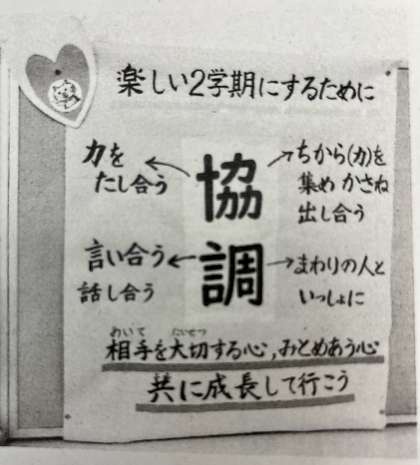 楽しい2学期にするために
力を
たし合う
ちから(力)を
集め かさね
出し合う
協
調
言い合う
話し合う
まわりの人と
いっしょに
あいて たいせつ
相手を大切する心,みとめあう心
共に成長して行こう